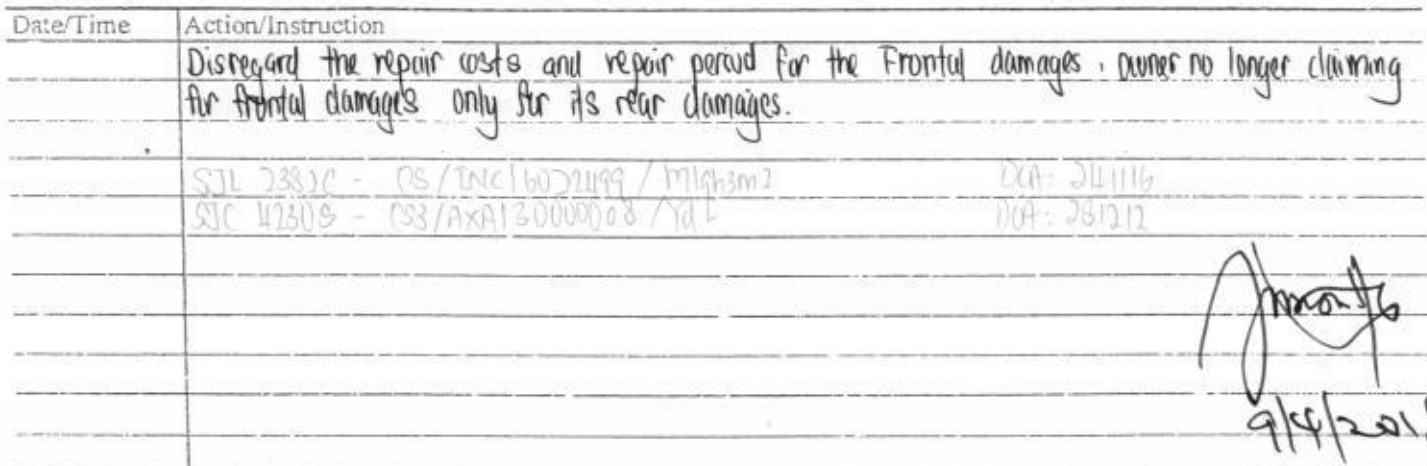 Date/Time Action/Instruction
Disregard the repair costs and repair period for the Frontal damages, owner no longer claiming
for frontal damages only for its rear damages.
SJL 2383C - CS/INC16022499/M1gh3m2 DOA: 241116
SJC 4230S - CS3/AXA13000008/Ydl DOA: 281212
9/4/201